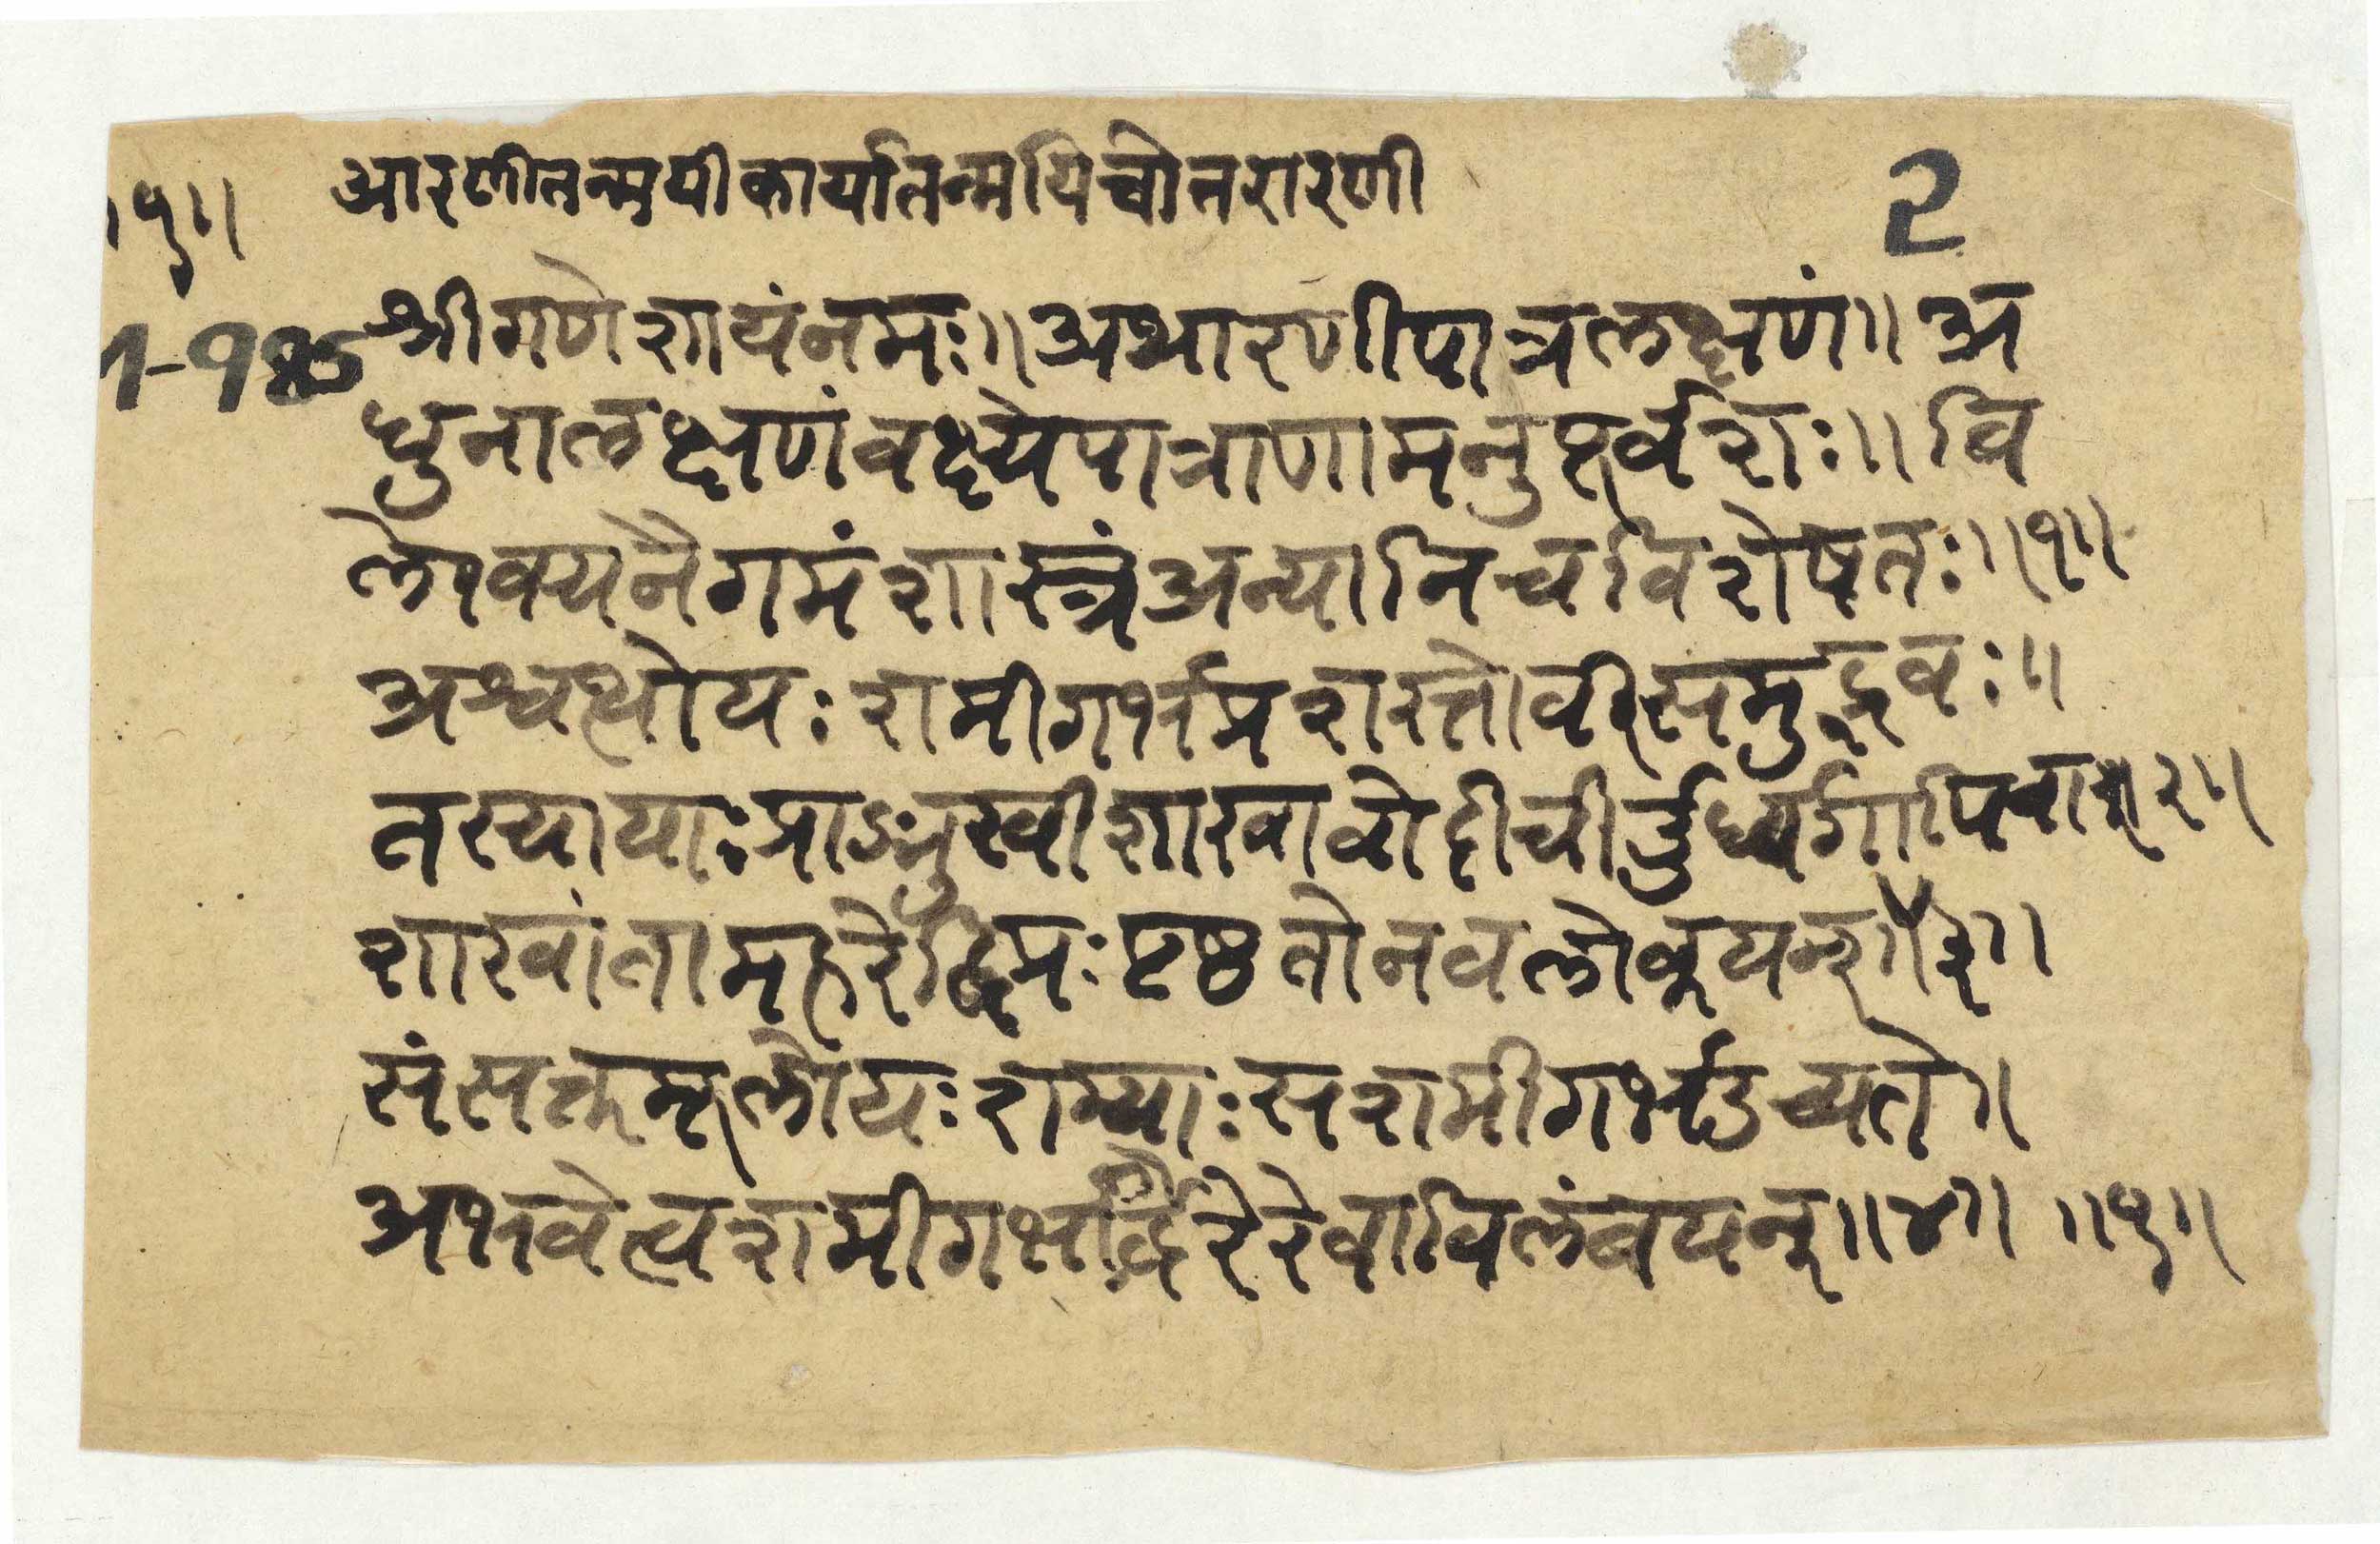 ।५॥ आरणीतन्मयीकार्यातन्मयिचोतरारणी
2
1-985 श्रीगणेशायंनमः॥अथारणीपात्रलक्षणं॥अ
धुनालक्षणंवक्ष्येपात्राणामनुपूर्वशः॥वि
लोक्यनैगमंशास्त्रंअन्यानिचविशेषतः॥१॥
अश्वत्थोयःशमीगर्भप्रशस्तोर्वीसमुद्भवः॥
तस्यायाःप्राङ्मुखीशाखावोदीचीर्वुर्ध्यगापिवा॥२॥
शाखांतामहरेद्विप्रःपृष्ठतोनवलोकयन्॥३॥
संसक्तमूलोयःशम्याःसशमीगर्भउच्यते॥
अभवेत्वशमीगर्भाद्धरेरेवाविलंबयन्॥४॥ ॥५॥